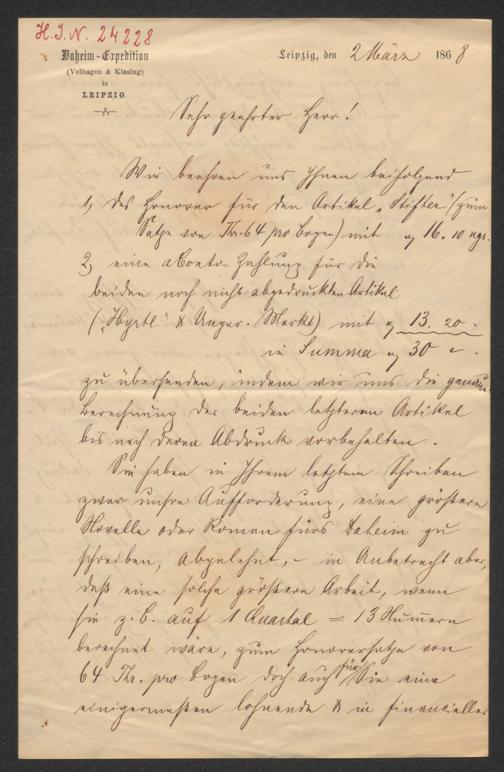 H.I.N. 24228
Daheim-Expedition
(Velhagen & Klasing)
in
LEIPZIG.
Leipzig, den 2 März 1868.
Sehr geehrter Herr!
Wir beehren uns Ihnen beifolgend
1, das Honorar für den Artikel „Stifter" (zum
Satze von Thr. 64 pro Bogen) mit 16. 10 ngr.
2, eine aConto-Zahlung für die
beiden noch nicht abgedruckten Artikel
(„Hyrtl" & Ungar. Markt) mit 13. 20 -
in Summa 30 -
zu übersenden, indem wir uns die genaue
Berechnung der beiden letzteren Artikel
bis nach deren Abdruck vorbehalten.
Sie haben in Ihrem letzten Schreiben
zwar unsre Aufforderung, eine größere
Novelle oder Roman fürs Daheim zu
schreiben, abgelehnt, – in Anbetracht aber,
daß eine solche größere Arbeit, wenn
sie z. B. auf 1 Quartal = 13 Nummern
berechnet wäre, zum Honorarsatze von
64 Thr. pro Bogen doch auch für Sie eine
einigermaßen lohnende & in financieller